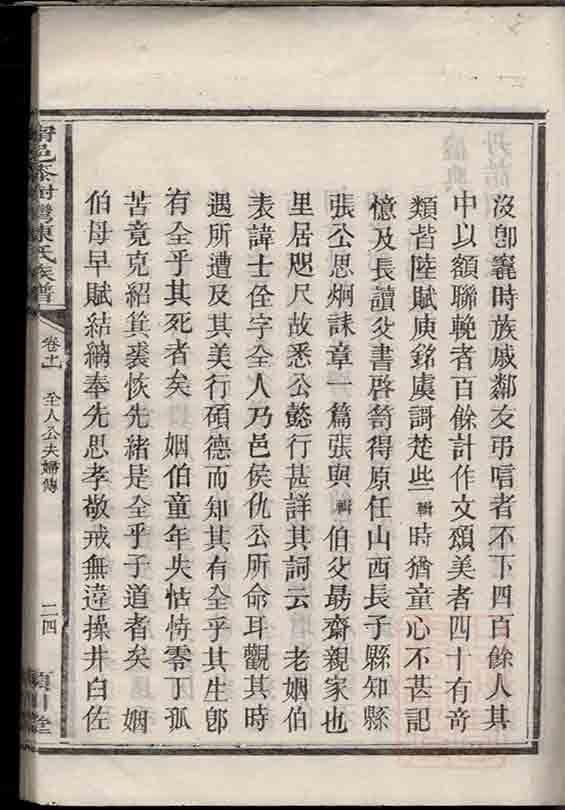 沒卽窀時族戚鄰友弔唁者不下四百餘人其
中以額聯輓者百餘計作文頌美者四十有奇
類皆陸賦庾銘虞謌楚些輯時猶童心不甚記
憶及長讀父書啓笥得原任山西長子縣知縣
張公思炯誄章一篇張與輯伯父勗齋親家也
里居咫尺故悉公懿行甚詳其詞云 老姻伯
表諱士佺字全人乃邑侯仇公所命耳觀其時
遇所遭及其美行碩德而知其有全乎其生卽
有全乎其死者矣 姻伯童年失怙恃零丁孤
苦竟克紹箕裘恢先緒是全乎子道者矣 姻
伯母早賦結縭奉先思孝敬戒無違操井臼佐
陳氏族譜
卷十一 全人公夫婦傳
二四
潁川堂